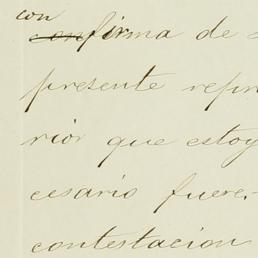 con
confirma de
presente repr
rior que estoy
cesario fuere.
contestacion